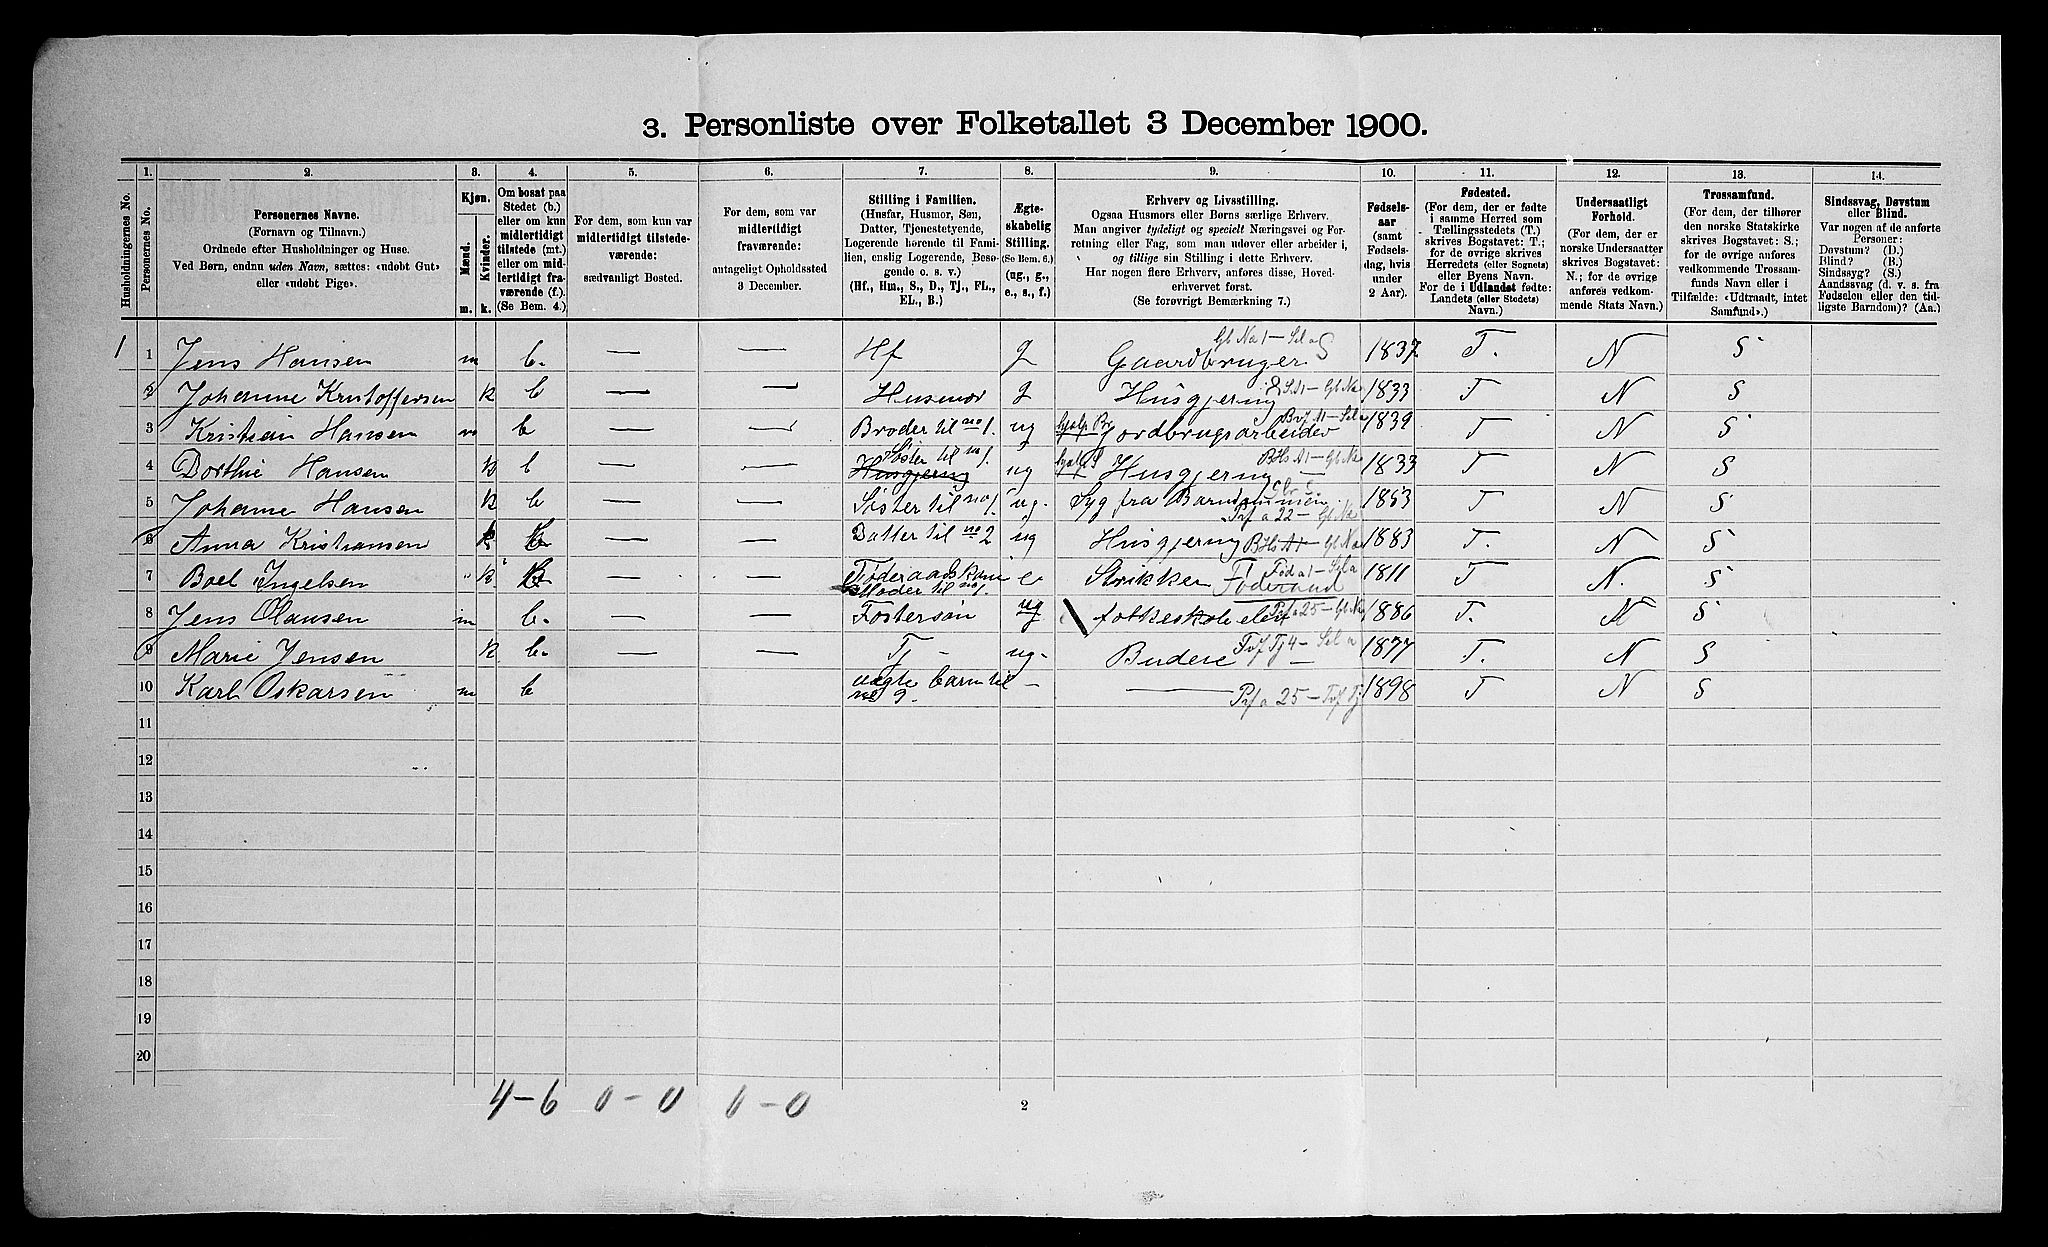 3. Personliste over Folketallet 3 December 1900.
Husholdningernes No.
1. Personernes No.
2. Personernes Navne.
(Fornavn og Tilnavn.)
Ordnede efter Husholdninger og Huse.
Ved Børn, endnu uden Navn, sættes: «udøbt Gut»
eller «udøbt Pige».
3. Kjøn.
Mænd. Kvinder.
m. k.
4. Om bosat paa
Stedet (b.)
eller om kun
midlertidigt
tilstede (mt.)
eller om mid-
lertidigt fra-
værende (f.).
(Se Bem. 4.)
5. For dem, som kun var
midlertidigt tilstede-
værende:
sædvanligt Bosted.
6. For dem, som var
midlertidigt
fraværende:
antageligt Opholdssted
3 December.
7. Stilling i Familien.
(Husfar, Husmor, Søn,
Datter, Tjenestetyende,
Logerende hørende til Fami-
lien, enslig Logerende, Besø-
gende o. s. v.)
(Hf., Hm., S., D., Tj., FL.,
EL., B.)
8. Ægte-
skabelig
Stilling.
(Se Bem. 6.)
(ug., g.,
e., s., f.)
9. Erhverv og Livsstilling.
Ogsaa Husmors eller Børns særlige Erhverv.
Man angiver tydeligt og specielt Næringsvei og For-
retning eller Fag, som man udøver eller arbeider i,
og tillige sin Stilling i dette Erhverv.
Har nogen flere Erhverv, anføres disse, Hoved-
erhvervet først.
(Se forøvrigt Bemærkning 7.)
10. Fødsels-
aar
(samt
Fødsels-
dag, hvis
under
2 Aar).
11. Fødested.
(For dem, der er fødte
i samme Herred som
Tællingsstedets (T.)
skrives Bogstavet: T.;
for de øvrige skrives
Herredets (eller Sognets)
eller Byens Navn.
For de i Udlandet fødte:
Landets (eller Stedets)
Navn.)
12. Undersaatligt
Forhold.
(For dem, der er
norske Undersaatter
skrives Bogstavet:
N.; for de øvrige
anføres vedkom-
mende Stats Navn.)
13. Trossamfund.
(For dem, der tilhører
den norske Statskirke
skrives Bogstavet: S.;
for de øvrige anføres
vedkommende Trossam-
funds Navn eller i
Tilfælde: «Udtraadt, intet
Samfund».)
14. Sindssvag, Døvstum
eller Blind.
Var nogen af de anførte
Personer:
Døvstum? (D.)
Blind? (B.)
Sindssyg? (S.)
Aandssvag (d. v. s. fra
Fødselen eller den tid-
ligste Barndom)? (Aa.)
1 1 Jens Hansen m b. — — Hf g Gaardbruger S 1837 T. N S
2 Johanne Kristoffersen k b — — Husmor g Husgjering 1833 T N S
3 Kristian Hansen m b — — Broder til no 1. ug Jordbrugsarbeider 1839 T N S
4 Dorthie Hansen k b — — Husgjering Søster til no 1. ug Husgjering 1833 T N S
5 Johanne Hansen k b — — Søster til no 1. ug. Syg fra Barndommen 1853 T N S
6 Anna Kristiansen k b — — Datter til no 2 ug Husgjering 1883 T. N S
7 Boel Ingelsen k b — — Føderaadskone Moder til no 1. e Strikker 1811 T N. S
8 Jens Olausen m b. — Fostersøn ug folkeskole elev 1886 T. N S
9 Marie Jensen k b. — — Tj ug. Budeie 1877 T. N S
10 Karl Oskarsen m b uegte barn til no 9. — — 1898 T N S
11
12
13
14
15
16
17
18
19
20
4-6 0-0 0-0
2